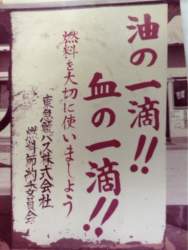 油の一滴!!
血の一滴!!
燃料を大切に使いましょう
東急バス株式会社
燃料節約委員会